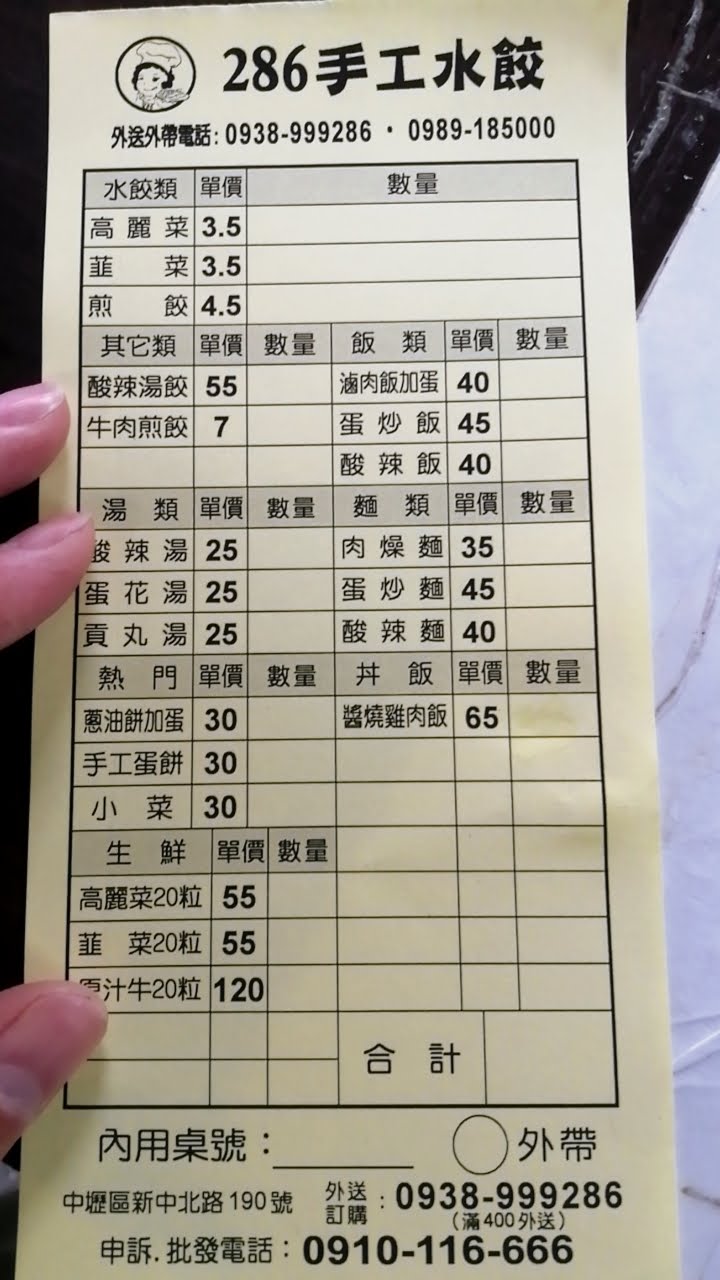 286手工水餃
外送外帶電話:0938-999286・0989-185000
水餃類 單價 數量
高麗菜 3.5
韮菜 3.5
煎餃 4.5
其它類 單價 數量 飯類 單價 數量
酸辣湯餃 55 滷肉飯加蛋 40
牛肉煎餃 7 蛋炒飯 45
酸辣飯 40
湯類 單價 數量 麵類 單價 數量
酸辣湯 25 肉燥麵 35
蛋花湯 25 蛋炒麵 45
貢丸湯 25 酸辣麵 40
熱門 單價 數量 丼飯 單價 數量
蔥油餅加蛋 30 醬燒雞肉飯 65
手工蛋餅 30
小菜 30
生鮮 單價 數量
高麗菜20粒 55
韮菜20粒 55
原汁牛20粒 120
合計
內用桌號： 外帶
中壢區新中北路190號 外送訂購：0938-999286
（滿400外送）
申訴.批發電話：0910-116-666